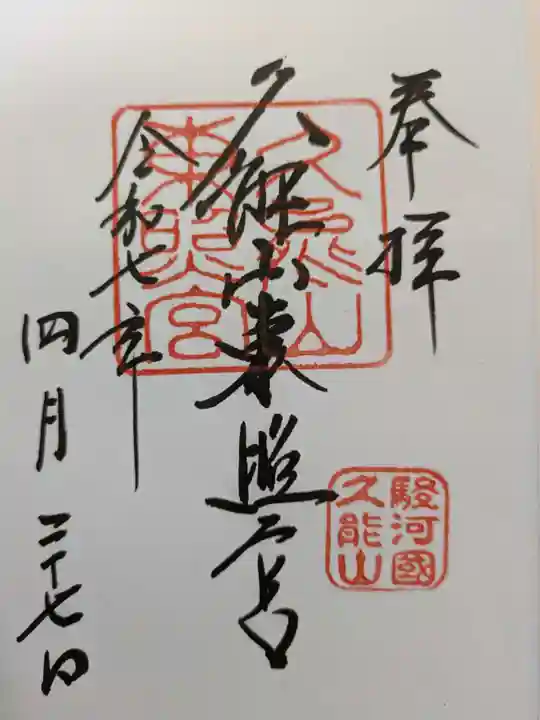 奉拝
久能山東照宮
久能山
東照宮
駿河國
久能山
令和七年
四月二十七日